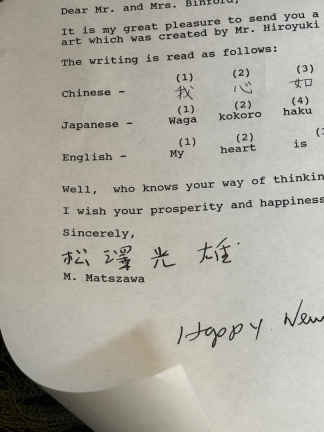 Dear Mr. and Mrs. Binford,
It is my great pleasure to send you a
art which was created by Mr. Hiroyuki
The writing is read as follows:
(1) (2) (3)
Chinese - 我 心 如
(1) (2) (4)
Japanese - Waga kokoro haku
(1) (2)
English - My heart is
Well, who knows your way of
I wish your prosperity and happiness
Sincerely,
松 澤 光 雄
M. Matszawa
Happy New